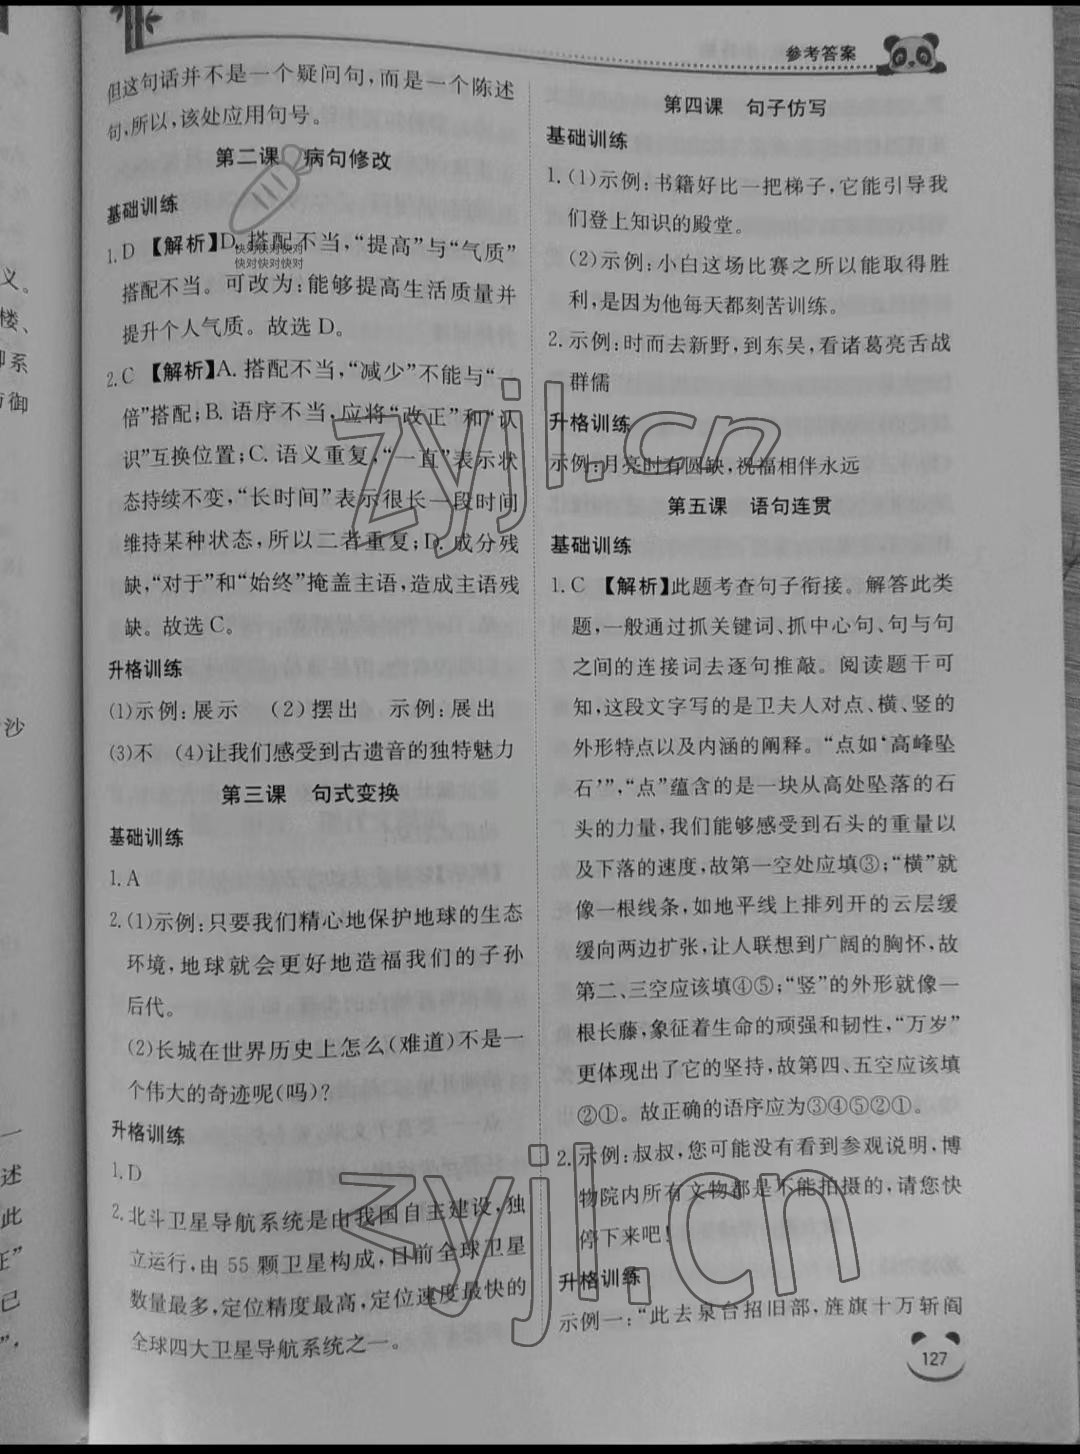 参考答案
但这句话并不是一个疑问句,而是一个陈述
句,所以,该处应用句号。
第二课 病句修改
基础训练
1. D 【解析】D. 搭配不当,“提高”与“气质”
搭配不当。可改为:能够提高生活质量并
提升个人气质。故选 D。
2. C 【解析】A. 搭配不当,“减少”不能与“
倍”搭配;B. 语序不当,应将“改正”和“认
识”互换位置;C. 语义重复,“一直”表示状
态持续不变,“长时间”表示很长一段时间
维持某种状态,所以二者重复;D. 成分残
缺,“对于”和“始终”掩盖主语,造成主语残
缺。故选 C。
升格训练
(1)示例:展示 (2)摆出 示例:展出
(3)不 (4)让我们感受到古遗音的独特魅力
第三课 句式变换
基础训练
1. A
2. (1)示例:只要我们精心地保护地球的生态
环境,地球就会更好地造福我们的子孙
后代。
(2)长城在世界历史上怎么(难道)不是一
个伟大的奇迹呢(吗)?
升格训练
1. D
2. 北斗卫星导航系统是由我国自主建设,独
立运行,由 55 颗卫星构成,目前全球卫星
数量最多,定位精度最高,定位速度最快的
全球四大卫星导航系统之一。
第四课 句子仿写
基础训练
1. (1)示例:书籍好比一把梯子,它能引导我
们登上知识的殿堂。
(2)示例:小白这场比赛之所以能取得胜
利,是因为他每天都刻苦训练。
2. 示例:时而去新野,到东吴,看诸葛亮舌战
群儒
升格训练
示例:月亮时有圆缺,祝福相伴永远
第五课 语句连贯
基础训练
1. C 【解析】此题考查句子衔接。解答此类
题,一般通过抓关键词、抓中心句、句与句
之间的连接词去逐句推敲。阅读题干可
知,这段文字写的是卫夫人对点、横、竖的
外形特点以及内涵的阐释。“点如‘高峰坠
石’”,“点”蕴含的是一块从高处坠落的石
头的力量,我们能够感受到石头的重量以
及下落的速度,故第一空处应填③;“横”就
像一根线条,如地平线上排列开的云层缓
缓向两边扩张,让人联想到广阔的胸怀,故
第二、三空应该填④⑤;“竖”的外形就像一
根长藤,象征着生命的顽强和韧性,“万岁”
更体现出了它的坚持,故第四、五空应该填
②①。故正确的语序应为③④⑤②①。
2. 示例:叔叔,您可能没有看到参观说明,博
物院内所有文物都是不能拍摄的,请您快
停下来吧!
升格训练
示例一:“此去泉台招旧部,旌旗十万斩阎
127
快对快对快对
快对快对快对
zyjl.cn
zyjl.cn
义。
楼、
系
御
沙
一
述
此
正”
己
”,